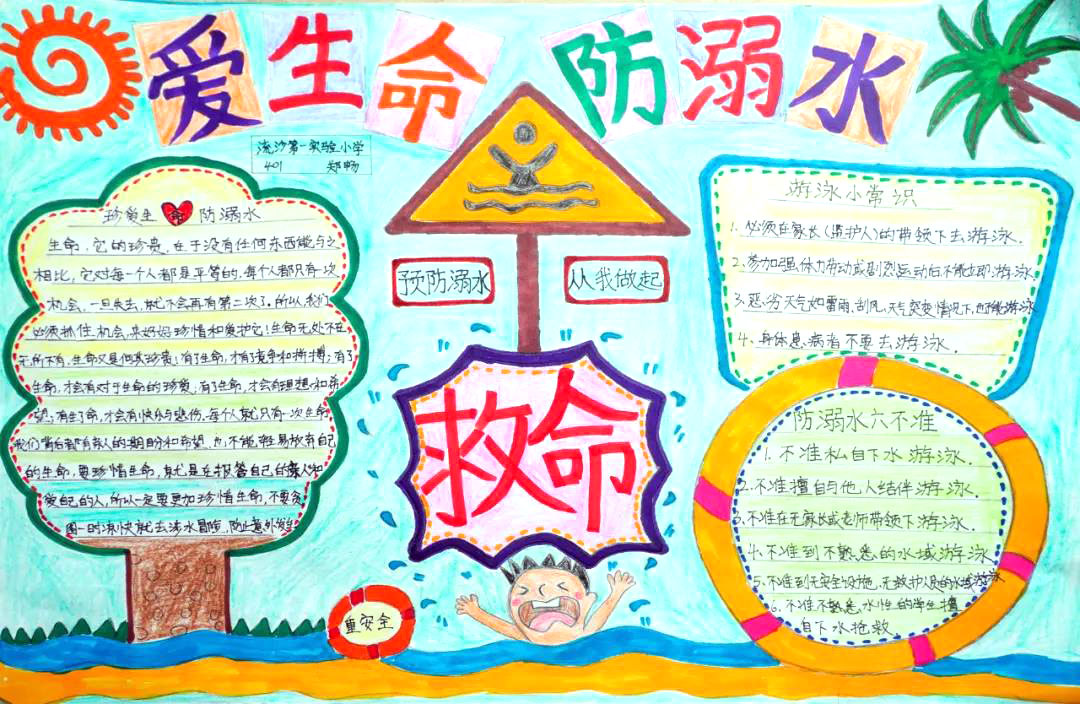 爱生命 防溺水
流沙第一实验小学
401 郑畅
珍爱生命 防溺水
生命,它的珍贵,在于没有任何东西能与之
相比,它对每一个人都是平等的,每个人都只有一次
机会,一旦失去,就不会再有第二次了。所以,我们
必须抓住机会,来好好珍惜和爱护它!生命无处不在
无所不有,生命又是何其珍贵;有了生命,才有了竞争和拼搏;有了
生命,才会有对于生命的珍爱;有了生命,才会有理想和希
望;有生了命,才会有快乐与悲伤。每个人就只有一次生命
我们背后都有亲人的期盼和希望,也不能轻易放弃自己
的生命,要珍惜生命,就是在报答自己的亲人和
爱自己的人,所以一定要更加珍惜生命,不要贪
图一时凉快就去涉水冒险,防止意外发生
预防溺水
从我做起
救命
重安全
游泳小常识
1. 必须在家长(监护人)的带领下去游泳.
2. 参加强体力劳动或剧烈运动后不能立即游泳
3. 恶劣天气如雷雨,刮风,天气突变情况下,也不能游泳
4. 身体患病者不要去游泳.
防溺水六不准
1. 不准私自下水游泳.
2. 不准擅自与他人结伴游泳.
3. 不准在无家长或老师带领下游泳.
4. 不准到不熟悉的水域游泳
5. 不准到无安全设施、无救护人员的水域游泳
6. 不准不熟悉水性的学生擅
自下水抢救.